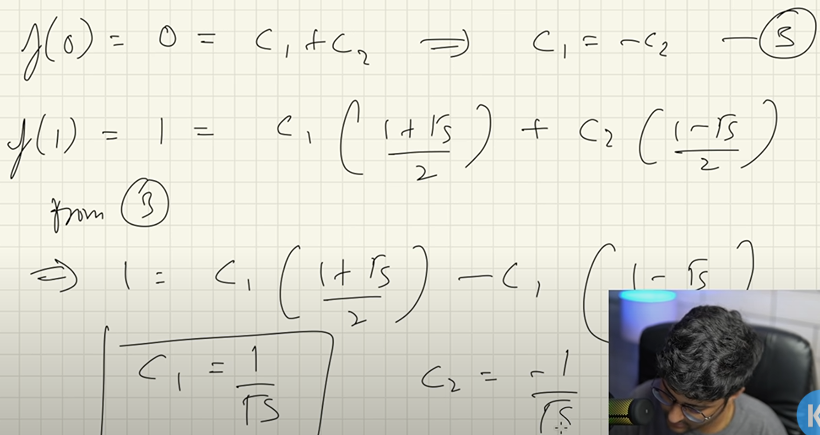 f(0) = 0 = C₁ + C₂ ⇒ C₁ = -C₂ — ③
f(1) = 1 = C₁ ((1+√5)/2) + C₂ ((1-√5)/2)
from ③
⇒ 1 = C₁ ((1+√5)/2) - C₁ (1-√5
C₁ = 1/√5 C₂ = -1/√5
K